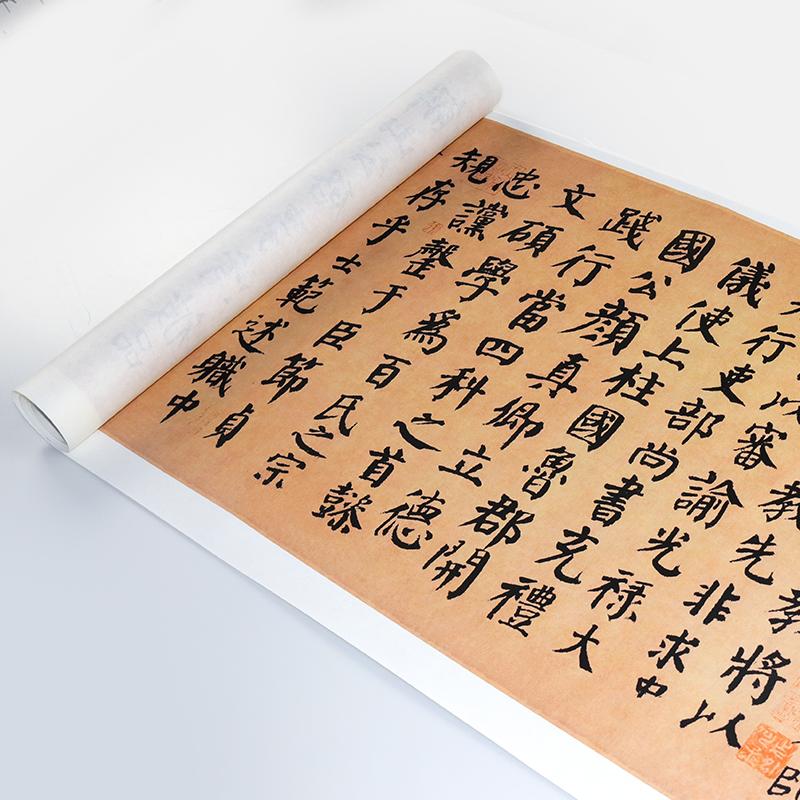 師
教將以
教先非求中
以審諭光祿大
行吏部尚書充禮
儀使上柱國魯郡開
國公顏真卿立德
踐行當四科之首懿
文碩學為百氏之宗
忠讜罄于臣節貞
規存乎士範述職中